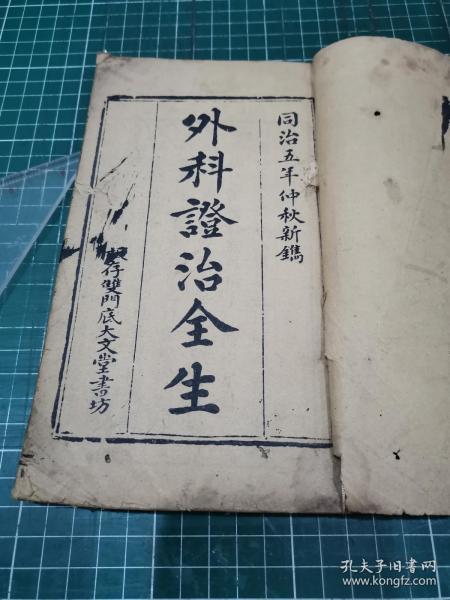 同治五年仲秋新鐫
外科證治全生
存雙門底大文堂書坊
孔夫子旧书网
www.kongfz.com